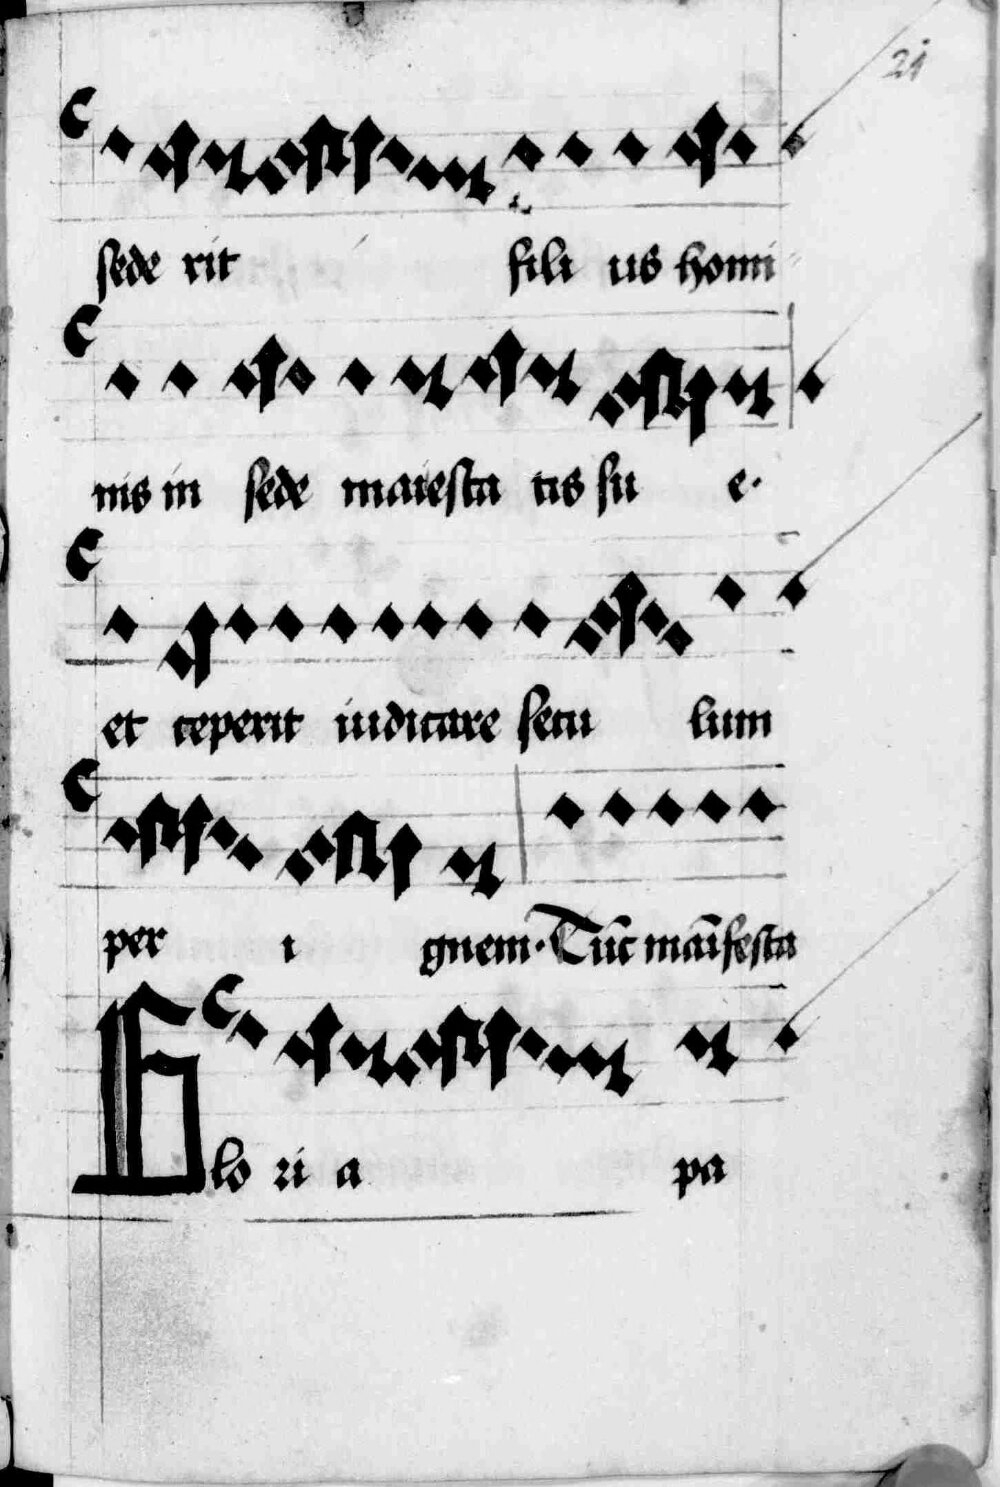 21
sede rit fili us homi
nis in sede maiesta tis su e.
et ceperit iudicare secu lum
per i gnem. Tūc māifesta
Glo ri a pa